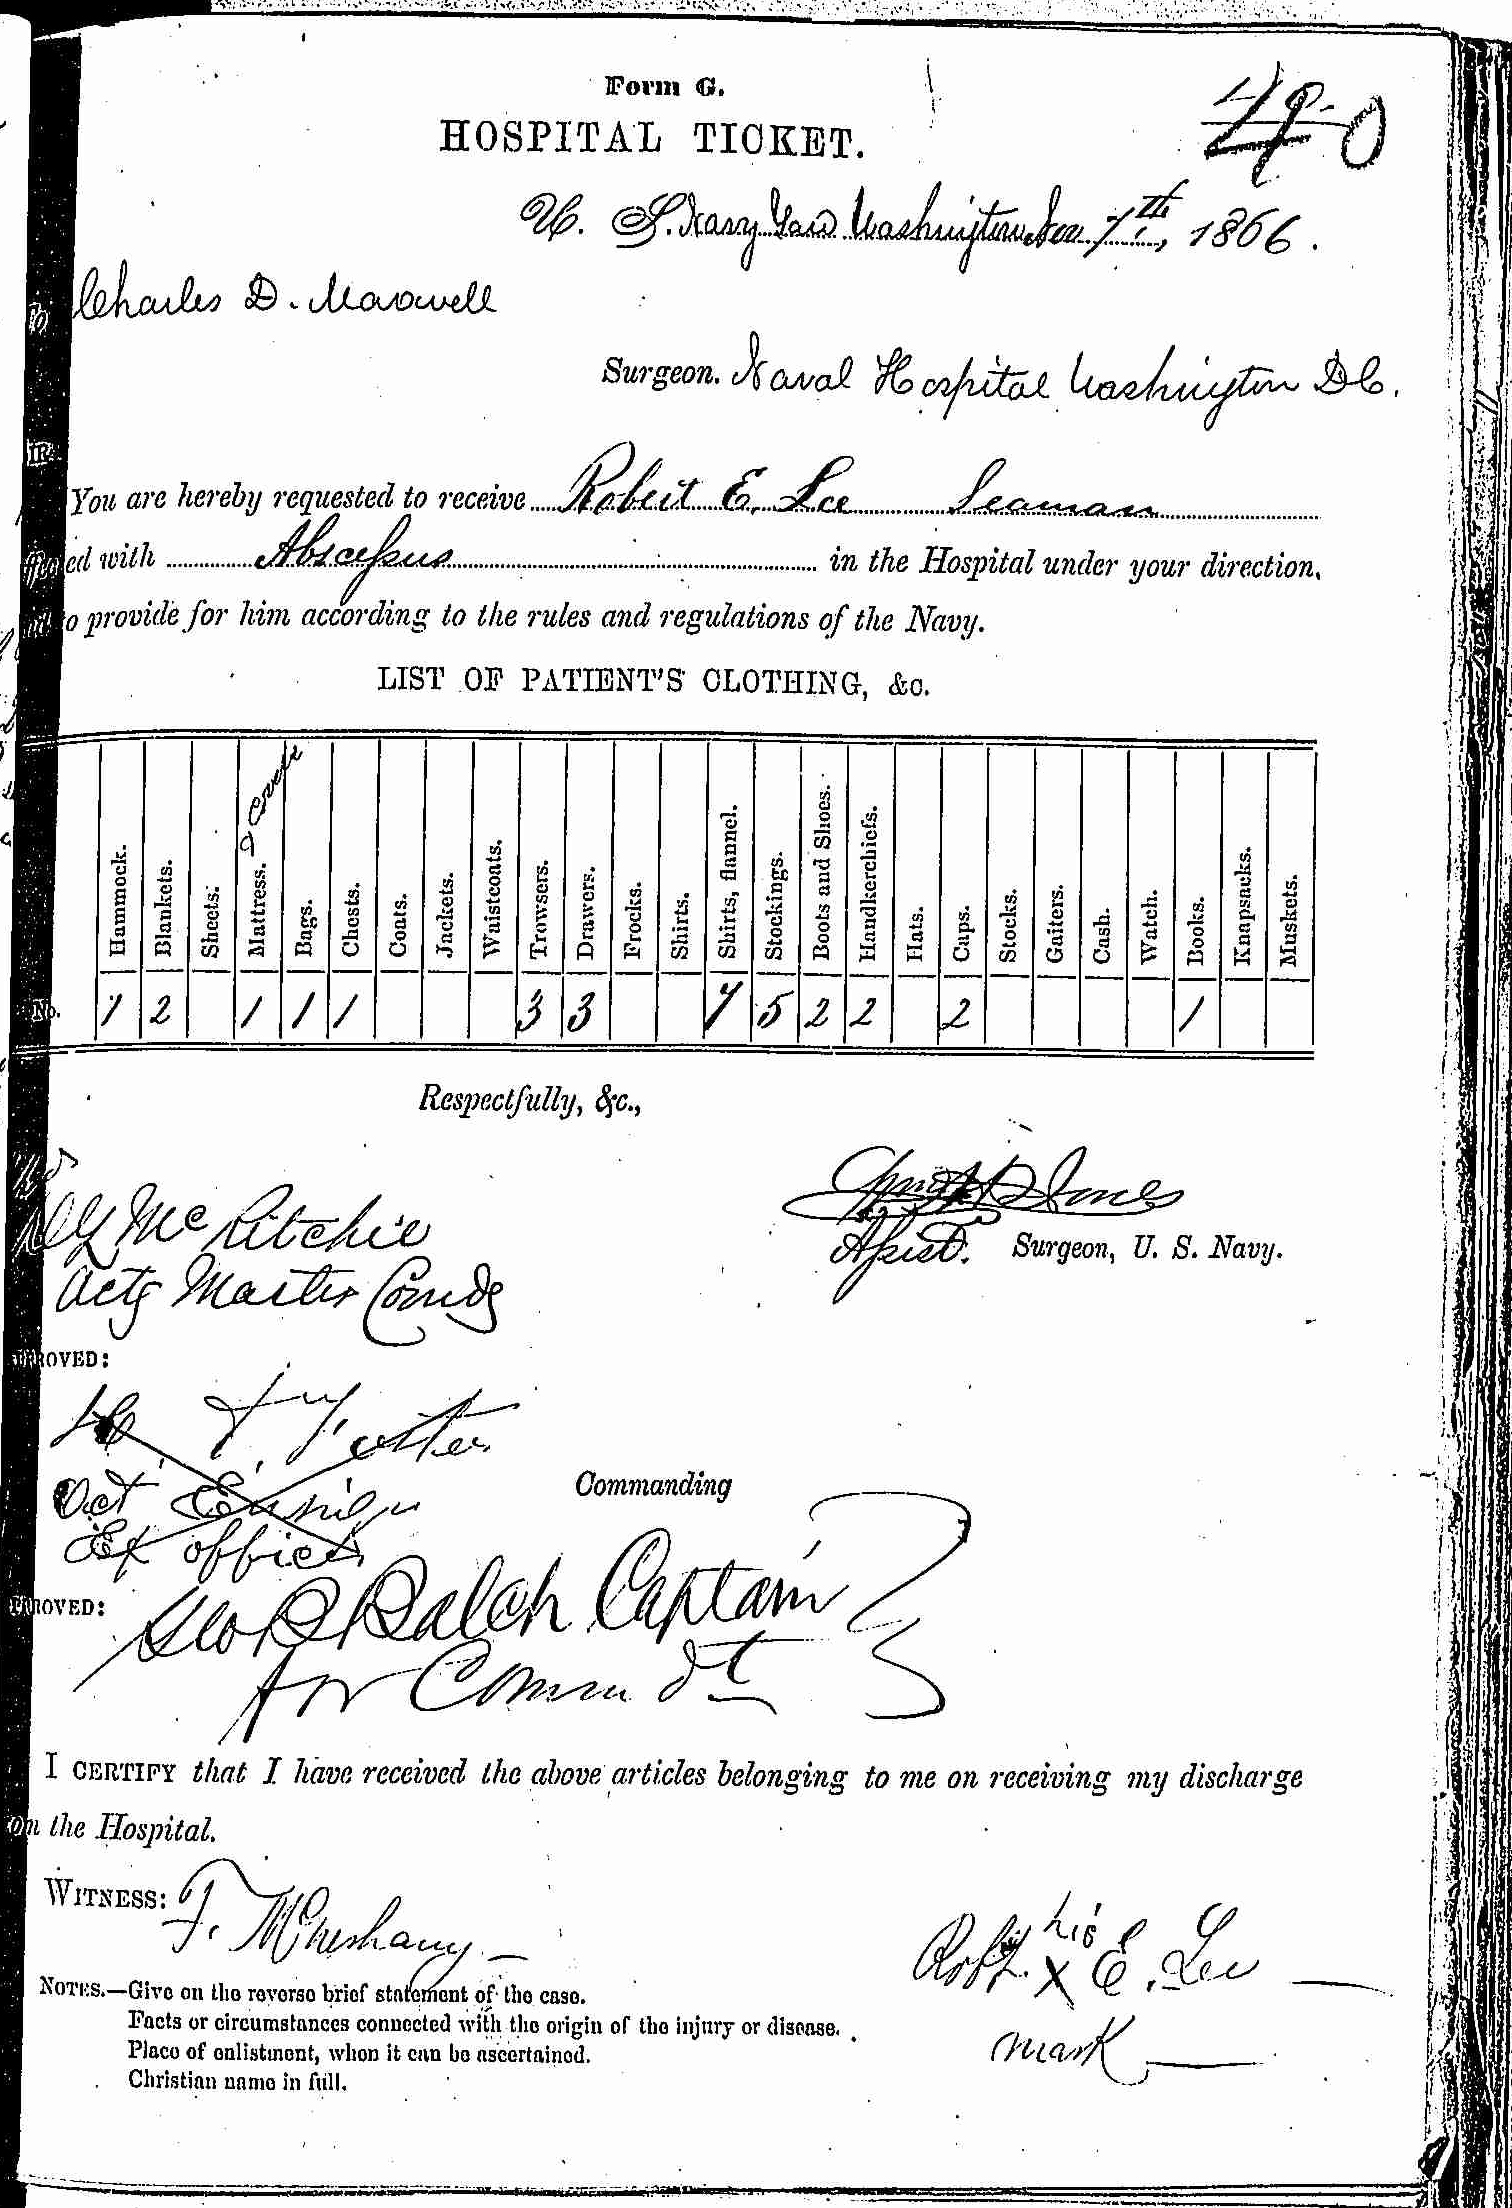 Form G.
HOSPITAL TICKET.
U. S. Navy Yard Washington Nov 7th, 1866.
Charles D. Maxwell
Surgeon. Naval Hospital Washington DC.
You are hereby requested to receive Robert E. Lee Seaman
ed with Abscessus in the Hospital under your direction,
to provide for him according to the rules and regulations of the Navy.
LIST OF PATIENT'S CLOTHING, &c.
Hammock. Blankets. Sheets. Mattress. & Cover Bags. Chests. Coats. Jackets. Waistcoats. Trowsers. Drawers. Frocks. Shirts. Shirts, flannel. Stockings. Boots and Shoes. Handkerchiefs. Hats. Caps. Stocks. Gaiters. Cash. Watch. Books. Knapsacks. Muskets.
No. 1 2 1 1 1 3 3 7 5 2 2 2 1
Respectfully, &c.,
Jones
McRitchie
Assist. Surgeon, U. S. Navy.
Actg Master Comdg
ROVED:
Foster
Act Ensign
Commanding
Ex officer
ROVED:
Geo B Balch Captain
for Commdt
I CERTIFY that I have received the above articles belonging to me on receiving my discharge
om the Hospital.
WITNESS: F.
his
Robt. X E. Lee
mark
NOTES.—Give on the reverse brief statement of the case.
Facts or circumstances connected with the origin of the injury or disease.
Place of enlistment, when it can be ascertained.
Christian name in full.